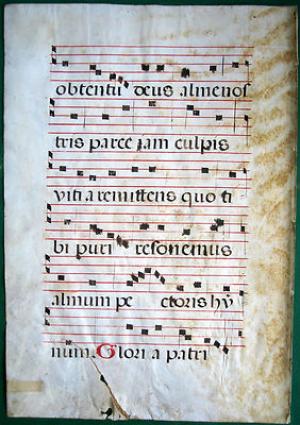 obtentu deus almenos
tris parce jam culpis
viti a remittens quo ti
bi puri resonemus
almum pe ctoris hÿ
num. Glori a patri